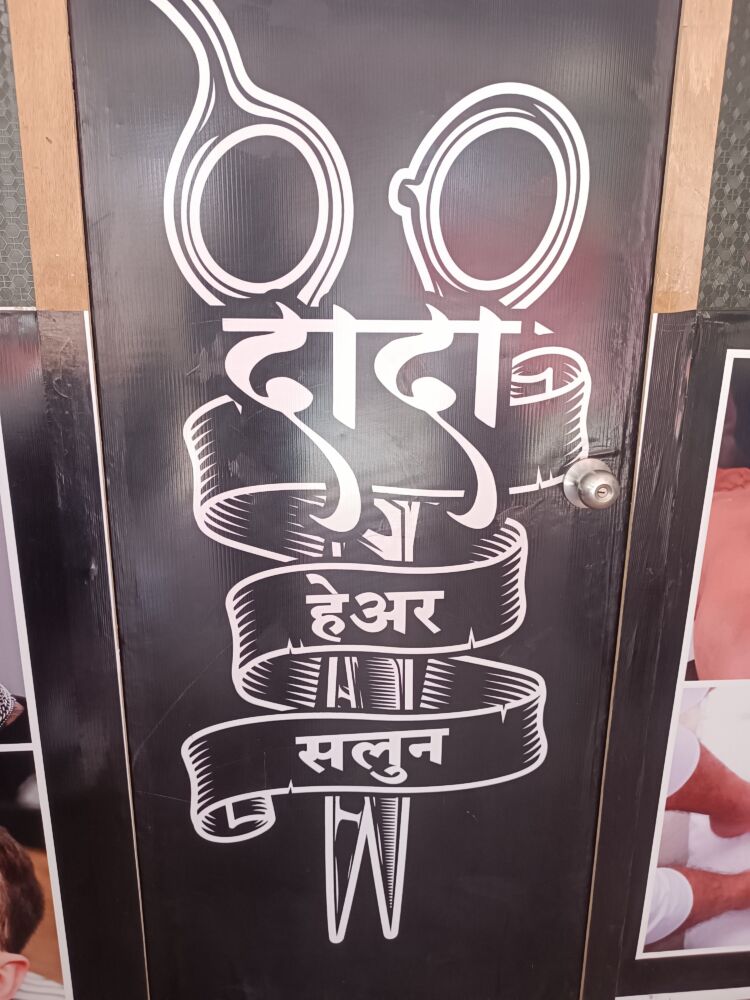 दादा
हेअर
सलुन